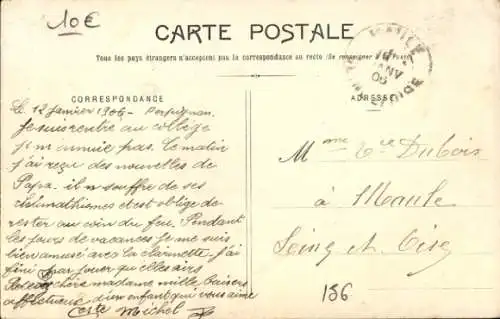 10€
CARTE POSTALE
Tous les pays étrangers n'acceptent pas la correspondance au recto (Se renseigner à la Poste)
CORRESPONDANCE
ADRESSE
Le 12 Janvier 1906 - Perpignan.
Je suis rentré au collège
je m'annuie pas. Le matin
j'ai reçu des nouvelles de
Papa. il souffre de ses
et est obligé de
rester au coin du feu. Pendant
les jours de vacances je me suis
bien amusé avec la clarinette. j'ai
fini par jouer quelles airs
chère madame mille baisers
affectueux d'un enfant qui vous aime
Michel
Mme Vve Dubois
à Maule
Seine et Oise
JANV
06
156